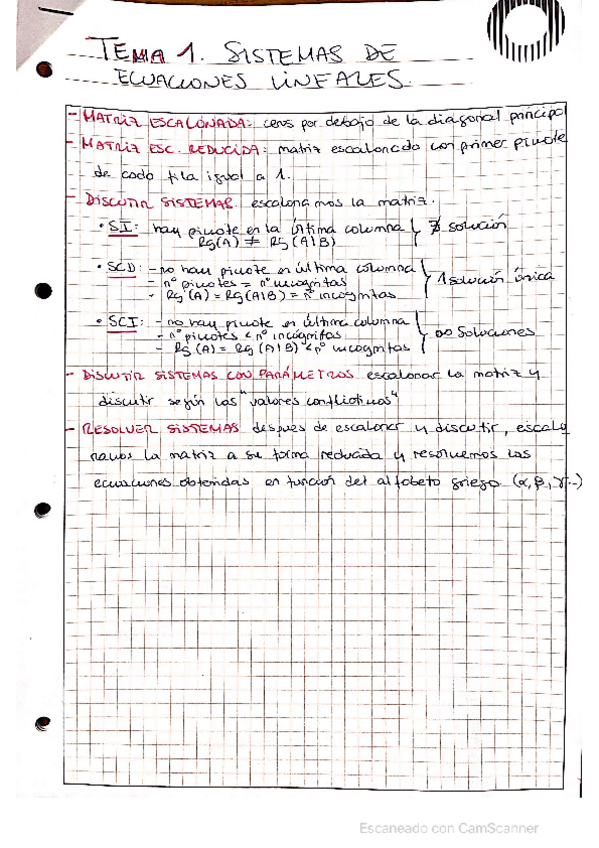 TEMA 1. SISTEMAS DE
ECUACIONES LINEALES.
- MATRIZ ESCALONADA: ceros por debajo de la diagonal principal
- MATRIZ ESC. REDUCIDA: matriz escalonada con primer pivote
de cada fila igual a 1.
- DISCUTIR SISTEMAS: escalonamos la matriz.
• SI: hay pivote en la última columna } ∄ solución
Rg(A) ≠ Rg(A|B)
• SCD: - no hay pivote en última columna
- nº pivotes = nº incognitas } 1 solución única
- Rg(A) = Rg(A|B) = nº incognitas
• SCI: - no hay pivote en última columna
- nº pivotes < nº incógnitas } ∞ Soluciones
- Rg(A) = Rg(A|B) < nº incognitas
- DISCUTIR SISTEMAS CON PARÁMETROS: escalonar la matriz y
discutir según los "valores conflictivos"
- RESOLVER SISTEMAS: despues de escalonar y discutir, escalo
namos la matriz a su forma reducida y resolvemos las
ecuaciones obtenidas en función del alfabeto griego (α, β, γ...)
Escaneado con CamScanner